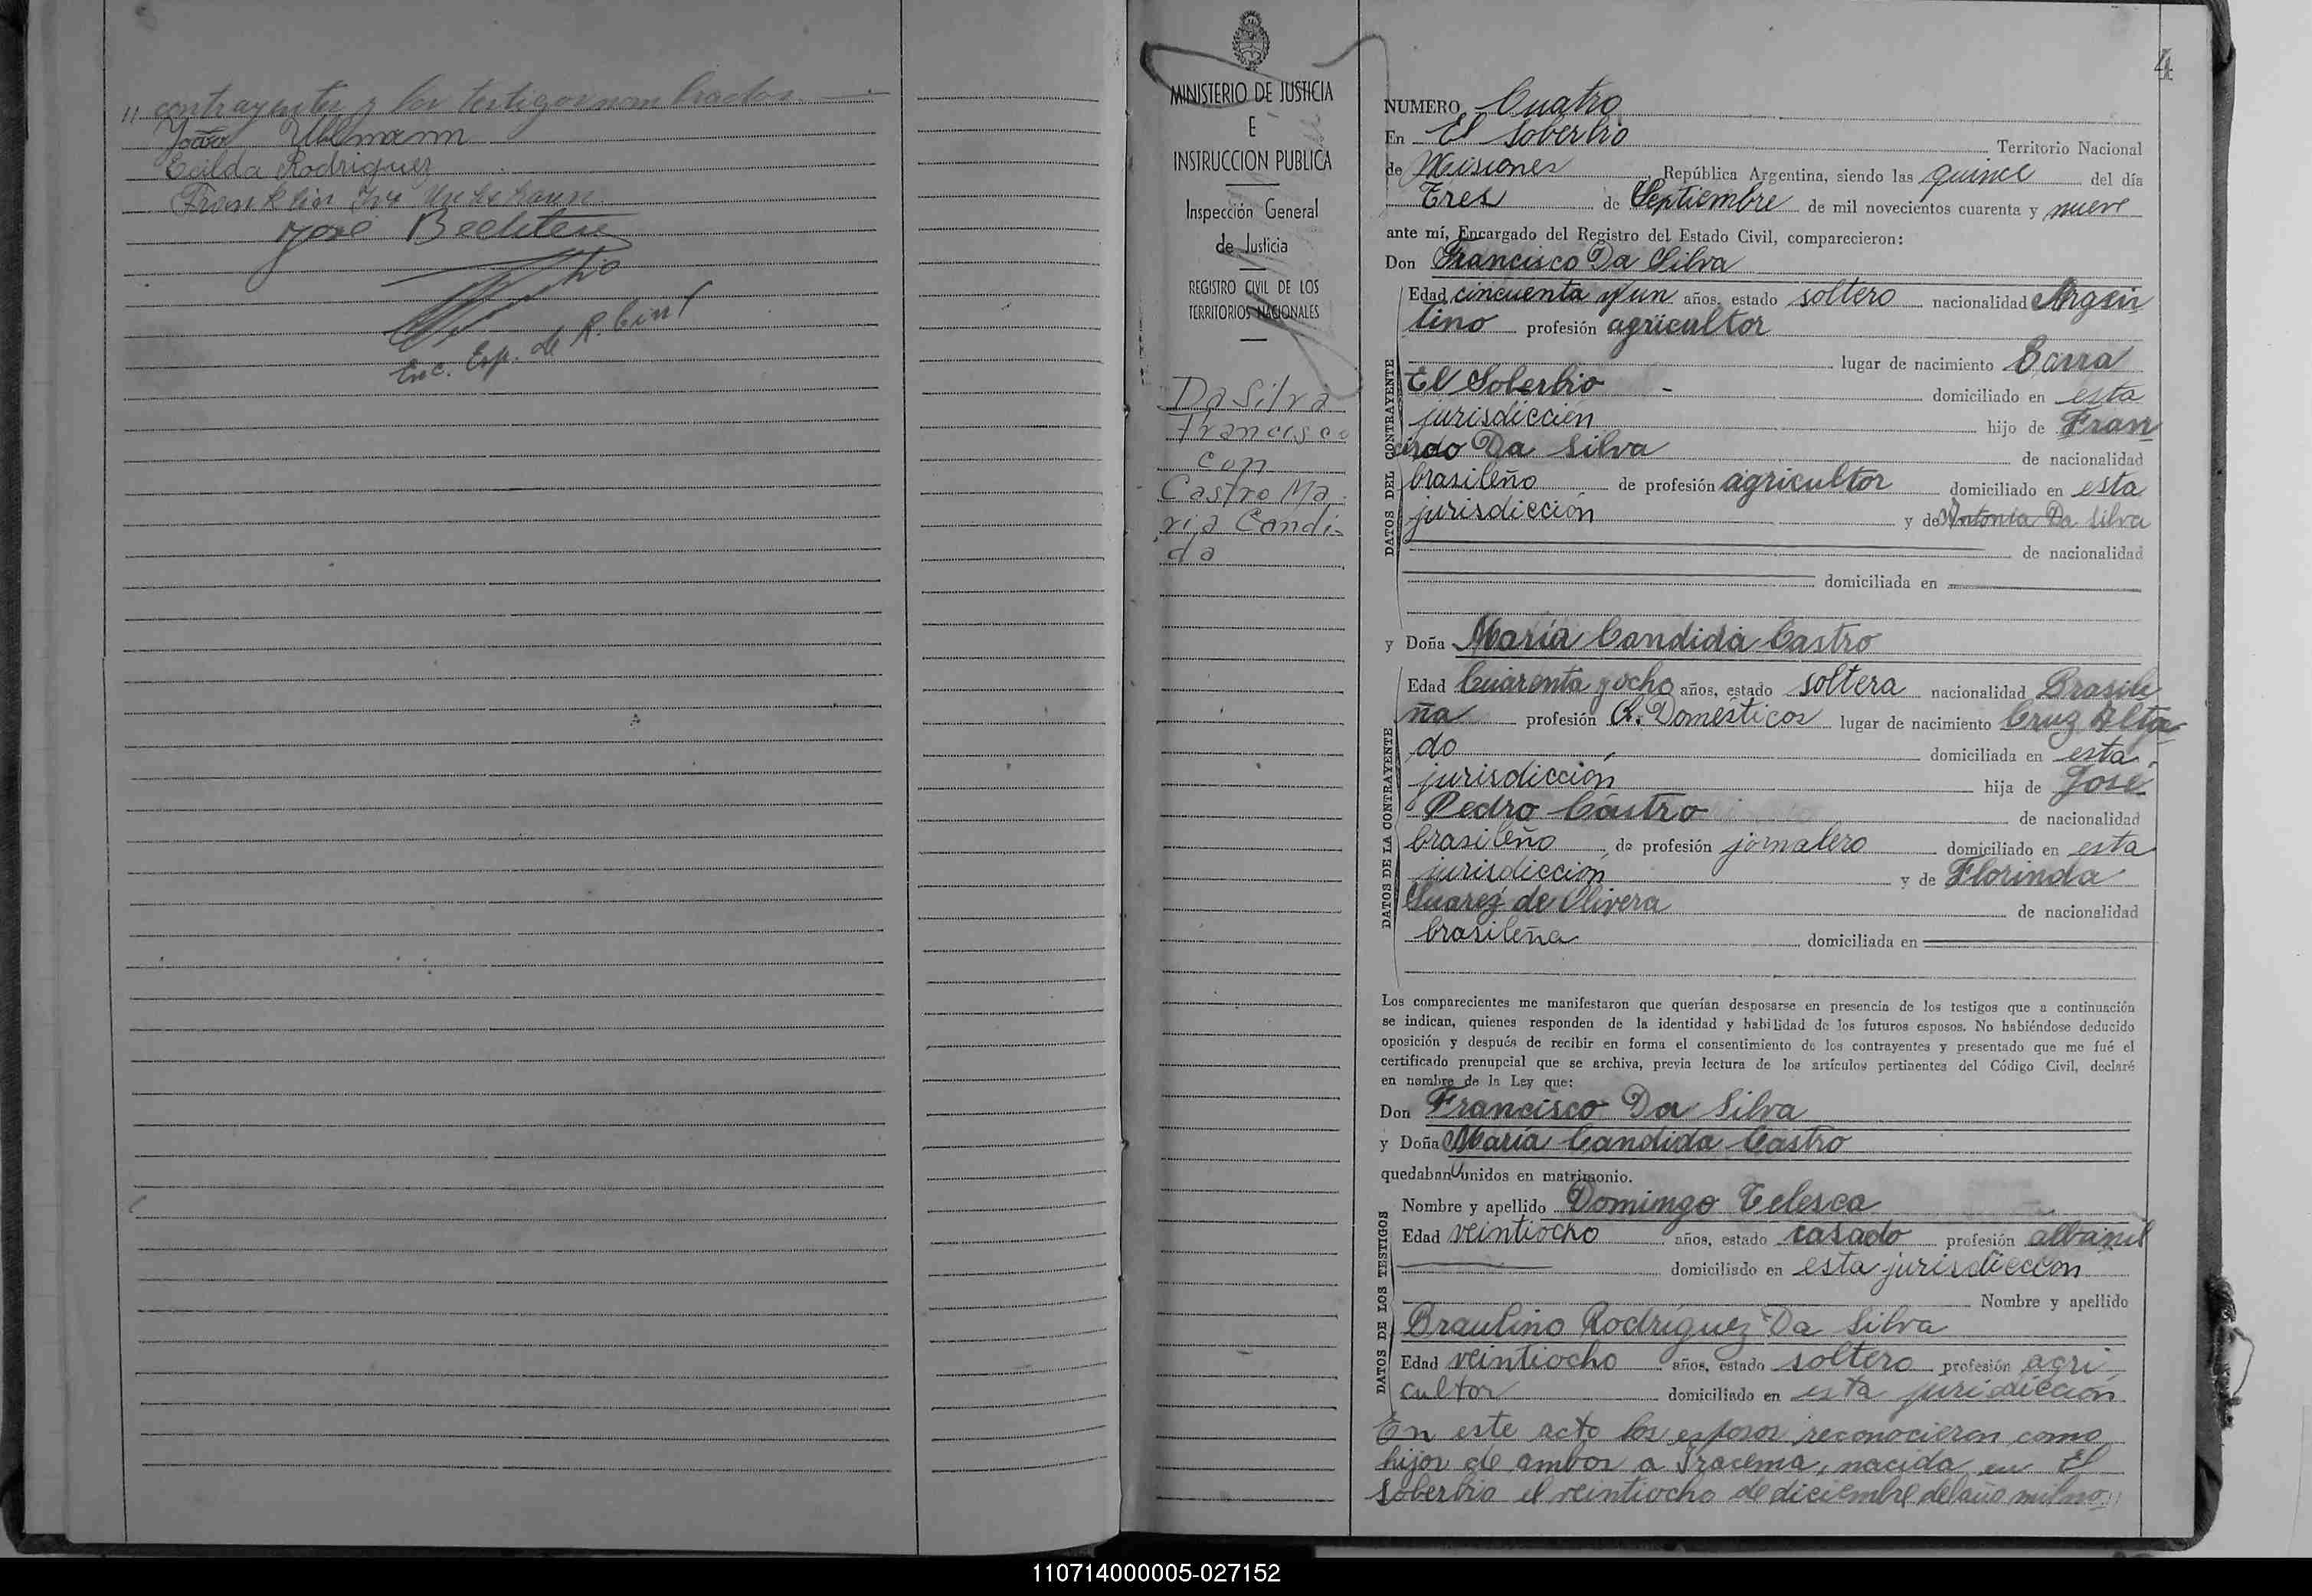 // contrayentes y los testigos nombrados.
João Ullmann
Rodriguez
Franklin
José
Enc. Esp. de R. Civil
MINISTERIO DE JUSTICIA
E
INSTRUCCION PUBLICA
Inspección General
de Justicia
REGISTRO CIVIL DE LOS
TERRITORIOS NACIONALES
Da Silva
Francisco
con
Castro Ma
ria Candi-
da
4
NUMERO Cuatro
En El Soberbio Territorio Nacional
de Misiones República Argentina, siendo las quince del día
Tres de Septiembre de mil novecientos cuarenta y nueve
ante mí, Encargado del Registro del Estado Civil, comparecieron:
Don Francisco Da Silva
DATOS DEL CONTRAYENTE
Edad cincuenta y un años, estado soltero nacionalidad Argen
tino profesión agricultor
lugar de nacimiento Barra
El Soberbio - domiciliado en esta
jurisdicción hijo de Fran
Da Silva de nacionalidad
brasileño de profesión agricultor domiciliado en esta
jurisdicción y de Antonia Da Silva
de nacionalidad
domiciliada en
y Doña María Candida Castro
DATOS DE LA CONTRAYENTE
Edad Cuarenta y ocho años, estado soltera nacionalidad Brasile
ña profesión Q. Domésticos lugar de nacimiento Cruz Alta
do domiciliada en esta
jurisdicción hija de José
Pedro Castro de nacionalidad
brasileño de profesión jornalero domiciliado en esta
jurisdicción y de Florinda
Suarez de Olivera de nacionalidad
brasileña domiciliada en
Los comparecientes me manifestaron que querían desposarse en presencia de los testigos que a continuación
se indican, quienes responden de la identidad y habilidad de los futuros esposos. No habiéndose deducido
oposición y después de recibir en forma el consentimiento de los contrayentes y presentado que me fué el
certificado prenupcial que se archiva, previa lectura de los artículos pertinentes del Código Civil, declaré
en nombre de la Ley que:
Don Francisco Da Silva
y Doña María Candida Castro
quedaban unidos en matrimonio.
DATOS DE LOS TESTIGOS
Nombre y apellido Domingo Telesca
Edad veintiocho años, estado casado profesión albañil
domiciliado en esta jurisdicción
Nombre y apellido
Braulino Rodríguez Da Silva
Edad veintiocho años, estado soltero profesión agri
cultor domiciliado en esta jurisdicción
En este acto los esposos reconocieron como
hijos de ambos a Iracema, nacida en El
Soberbio el veintiocho de diciembre del año mil no //
110714000005-027152